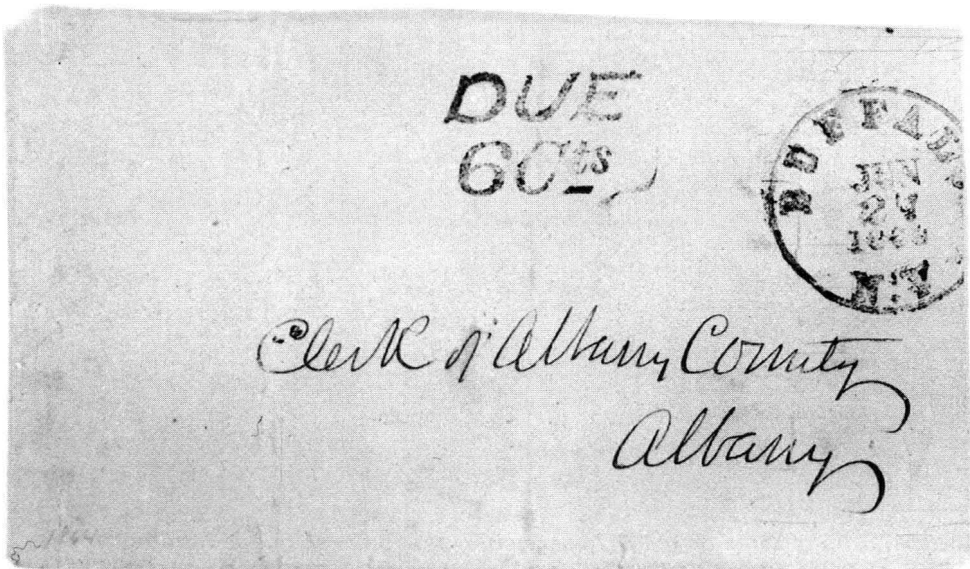 DUE
6 Cts
BUFFALO
N.Y
Clerk of Albany County
Albany
1864